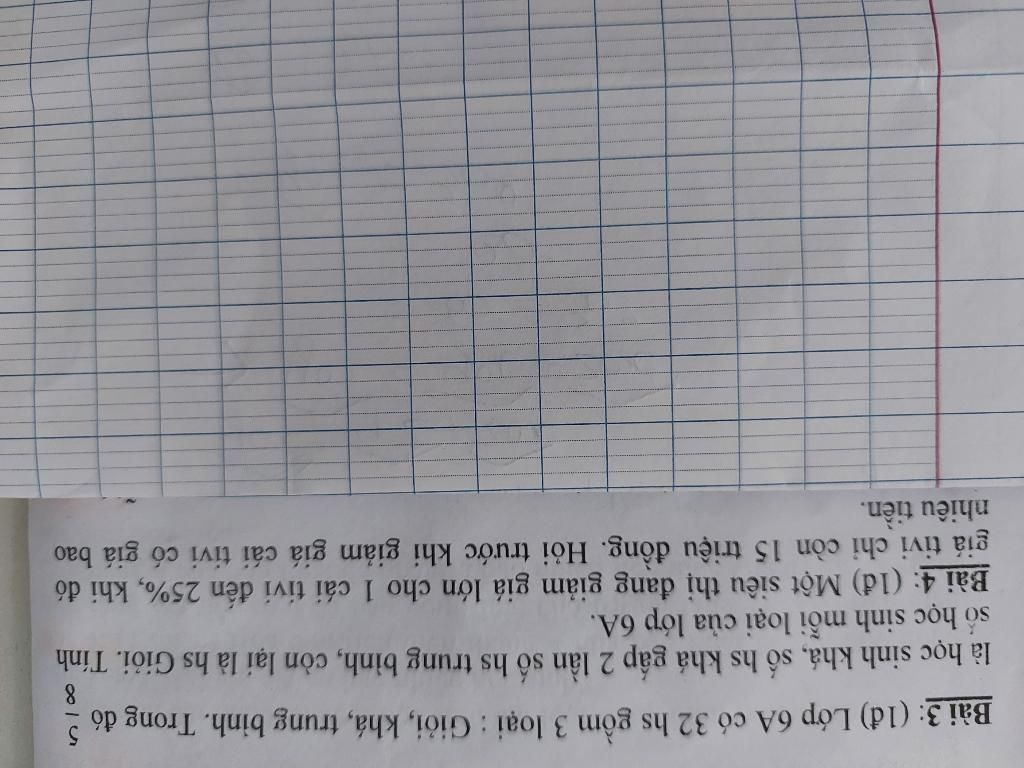 Bài 3: (1đ) Lớp 6A có 32 hs gồm 3 loại : Giỏi, khá, trung bình. Trong đó 5/8
là học sinh khá, số hs khá gấp 2 lần số hs trung bình, còn lại là hs Giỏi. Tính
số học sinh mỗi loại của lớp 6A.
Bài 4: (1đ) Một siêu thị đang giảm giá lớn cho 1 cái tivi đến 25%, khi đó
giá tivi chỉ còn 15 triệu đồng. Hỏi trước khi giảm giá cái tivi có giá bao
nhiêu tiền.